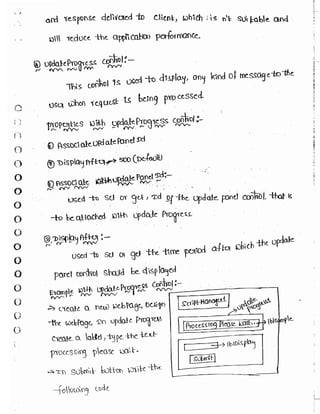 and response delivered to client, which is n't suitable and
will reduce the application performance.
UpdateProgress control:-
This control is used to display, any kind of message to the
user when request is being processed.
Properties with updateProgress control:-
① AssociateUpdatePanelId
② DisplayAfter → 500 (Default)
① Associate with updatePanel Id:-
used to set or get, Id of the update panel control. that is
to be attached with update Progress.
② DisplayAfter :-
used to set or get the time period after which the update
panel control should be displayed
Example with updateProgress Control:-
→ create a new webpage, Design
the webpage. In update Progress
create a label, type the text
processing please wait.
→ In submit button write the
following code
Script Manager
update Progress
Processing Please wait...
→ lblsample
→ lblDisplay
Submit